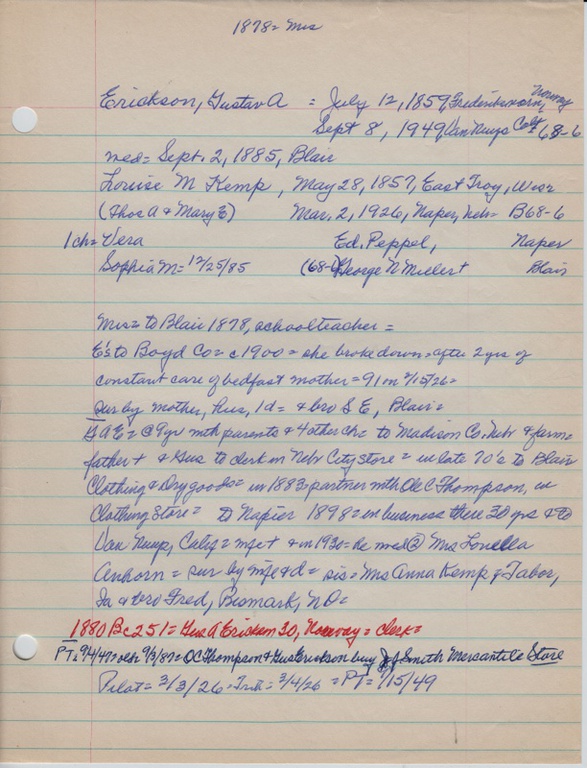 1878 = Mrs
Erickson, Gustav A = July 12, 1859, Frederiksvarn, Norway
Sept 8, 1949, Van Nuys Calif 68-6
med = Sept. 2, 1885, Blair
Louise M Kemp, May 28, 1857, East Troy, Wisc
(Thos A & Mary E) Mar. 2, 1926, Naper, Neb = B68-6
1 ch = Vera Ed. Peppel, Naper
Sophia M = 12/25/85 (68-6) George N Millert Blair
Mrs = to Blair 1878, schoolteacher =
E's to Boyd Co = c1900 = she broke down = after 2 yrs of
constant care of bedfast mother = 91 on 2/15/26 =
Sur by mother, hus, 1d = & bro S E, Blair =
GAE = @ 9 yr with parents & 4 other ch = to Madison Co. Nebr & farm =
father + & Gus to clerk in Nebr City store = in late 70's to Blair
Clothing & Dry goods = in 1883 partner with Ole C Thompson, in
Clothing Store = to Napier 1898 = in business there 30 yrs & to
Van Nuys, Calif = wife + & in 1930 = he med @ Mrs Louella
Anhorn = sur by wife & d = sis = Mrs Anna Kemp of Tabor,
Ia & bro Fred, Bismark, ND =
1880 Bc 251 = Gus A Erickson 20, Norway = clerk =
PT = 9/4/47 = old = 9/3/87 = OC Thompson & Gus Erickson buy J Smith Mercantile Store
Pilot = 3/3/26 = Trib = 3/4/26 = PT = 9/15/49